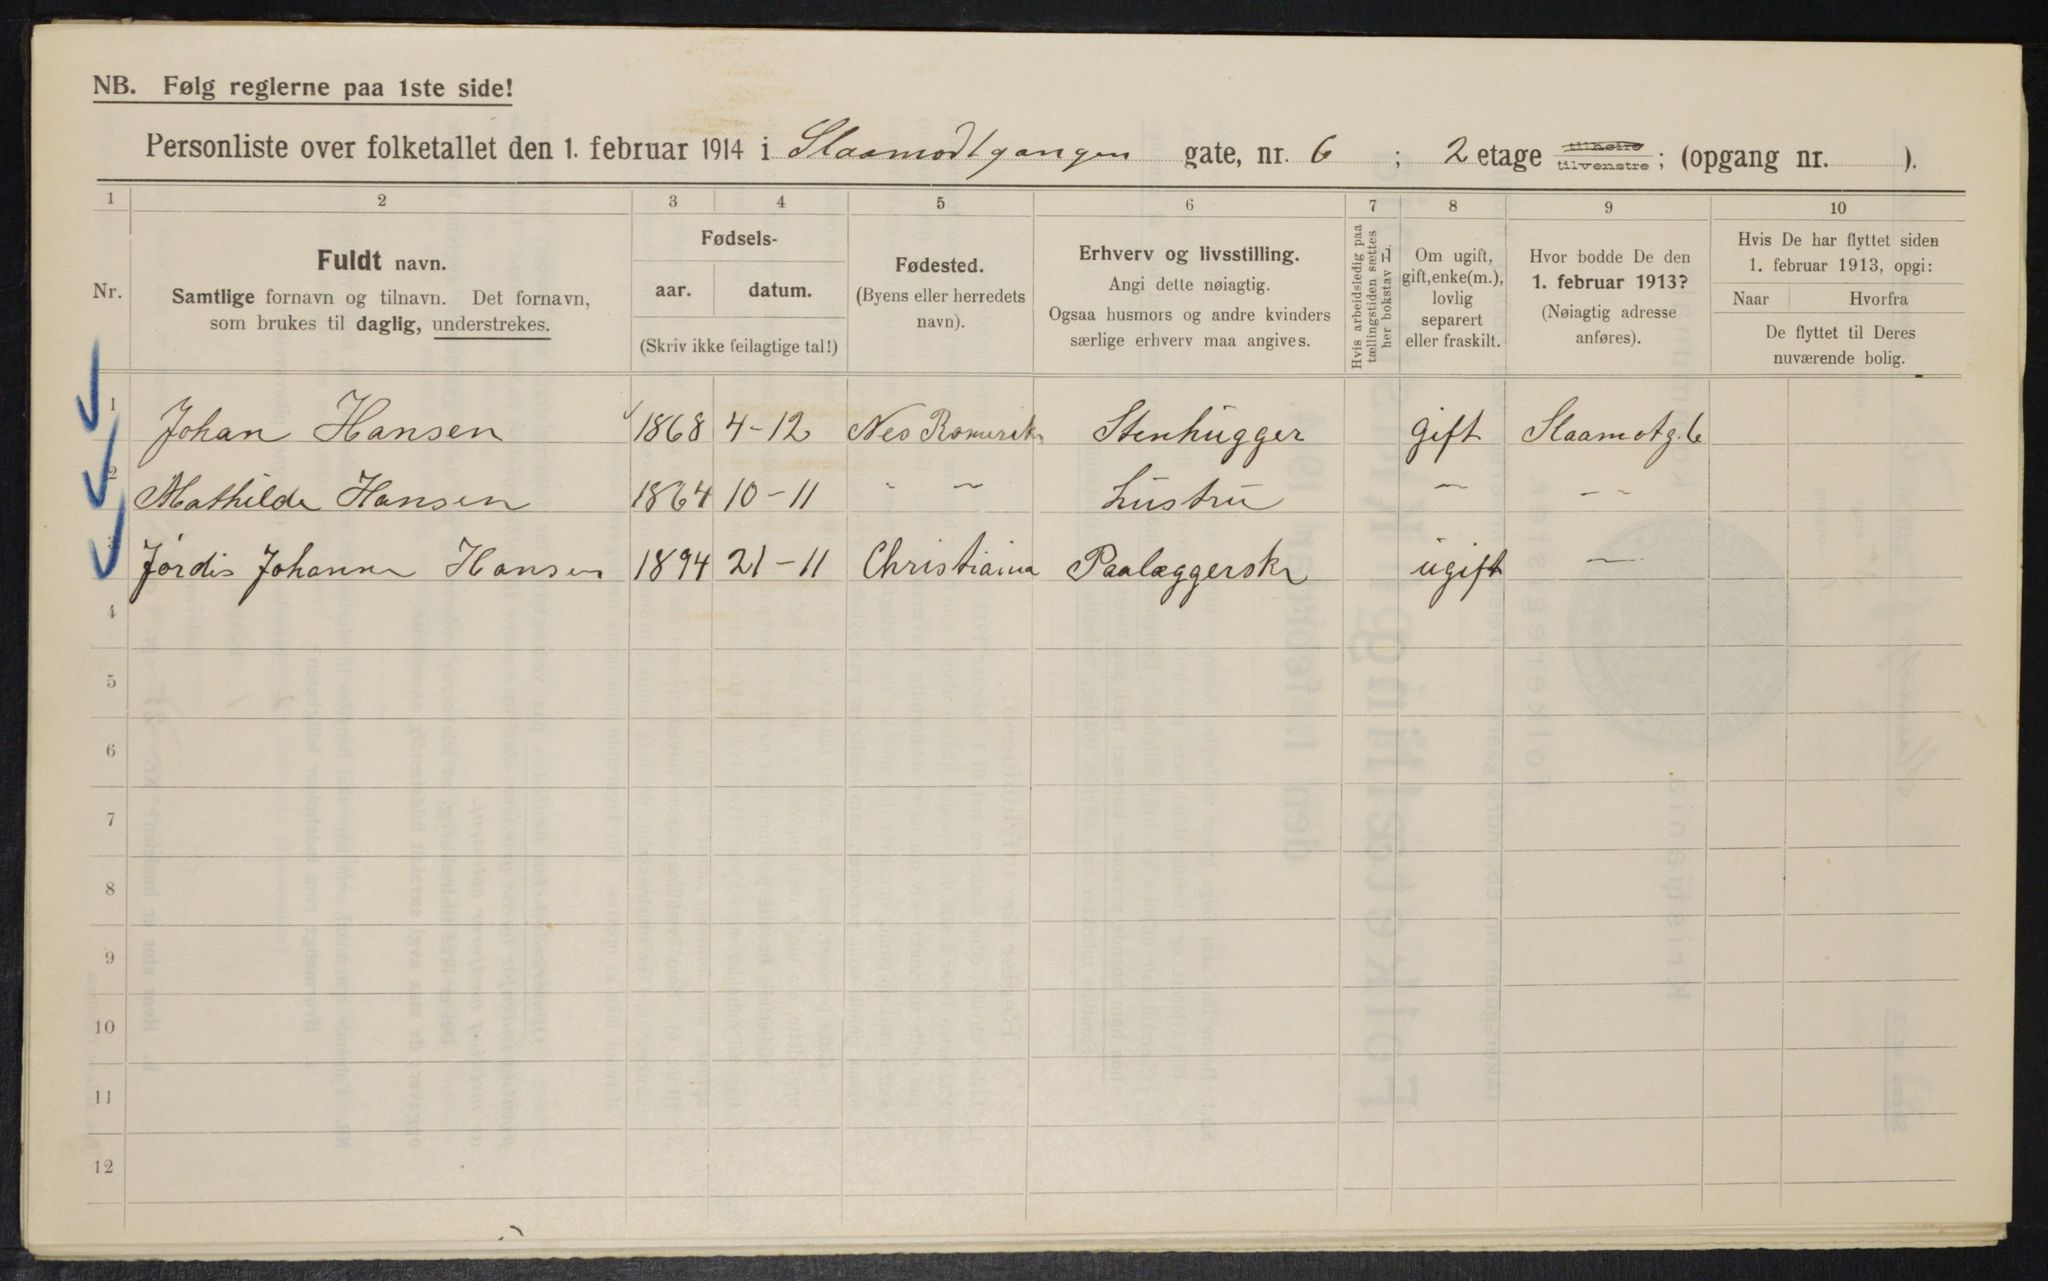 NB. Følg reglerne paa 1ste side!
Personliste over folketallet den 1. februar 1914 i Slaamodtgangen gate, nr. 6 ; 2 etage tilhøire tilvenstre; (opgang nr. ).
1 2 3 4 5 6 7 8 9 10
Nr.
Fuldt navn.
Samtlige fornavn og tilnavn. Det fornavn,
som brukes til daglig, understrekes.
Fødsels-
aar. datum.
(Skriv ikke feilagtige tal!)
Fødested.
(Byens eller herredets
navn).
Erhverv og livsstilling.
Angi dette nøiagtig.
Ogsaa husmors og andre kvinders
særlige erhverv maa angives.
Hvis arbeidsledig paa
tællingstiden sættes
her bokstav L.
Om ugift,
gift, enke(m.),
lovlig
separert
eller fraskilt.
Hvor bodde De den
1. februar 1913?
(Nøiagtig adresse
anføres).
Hvis De har flyttet siden
1. februar 1913, opgi:
Naar Hvorfra
De flyttet til Deres
nuværende bolig.
1 Johan Hansen 1868 4-12 Nes Romerike Stenhugger gift Slaamotg. 6
2 Mathilde Hansen 1864 10-11 " — — — -
3 Jørdis Johanne Hansen 1894 21-11 Christiania Paalæggerske ugift —
4
5
6
7
8
9
10
11
12